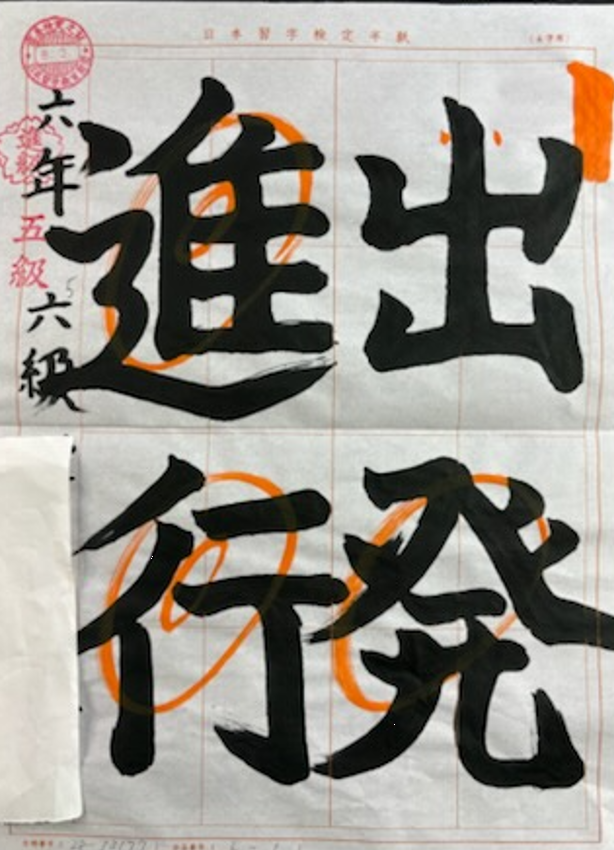 日本習字検定半紙
出発
進行
六年 六級
進級
五級
5